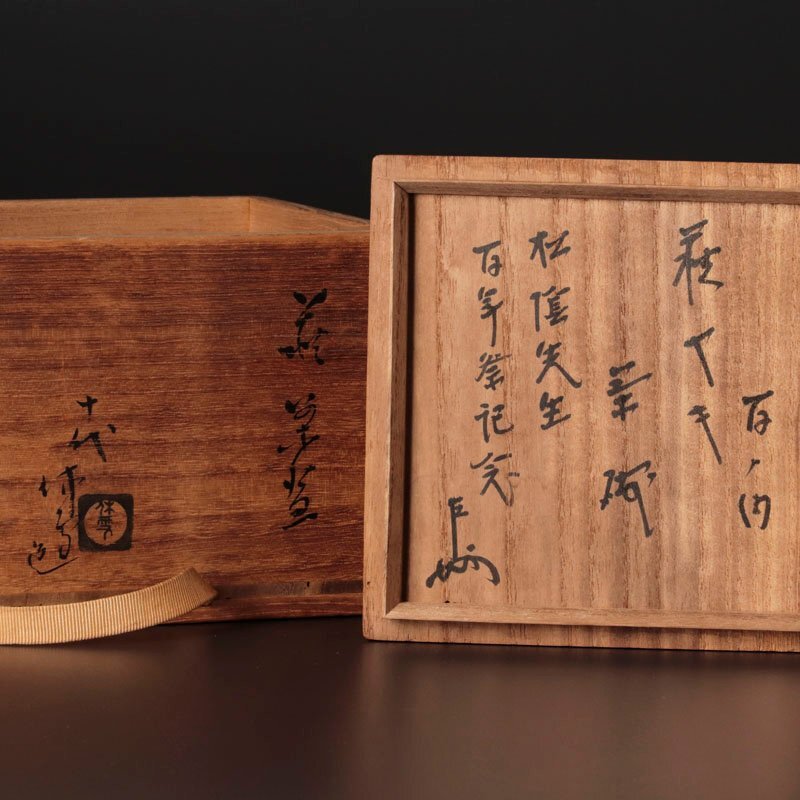 萩茶盌
十代
休雪
造
休雪
萩ヤキ
百ノ内
茶碗
松陰先生
百年祭記念